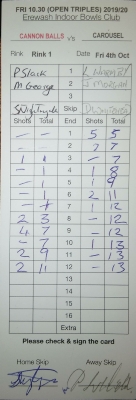 FRI 10.30 (OPEN TRIPLES) 2019/20
Erewash Indoor Bowls Club
CANNON BALLS v/s CAROUSEL
Rink Rink 1 Date Fri 4th Oct
P Slack 1
M George 2
3
S Skip
Shots Total Ends Shots Total
- - 1 5 5
- - 2 2 7
1 1 3 - 7
- 1 4 1 8
- 1 5 1 9
- 1 6 2 11
- 1 7 1 12
2 3 8 - 12
4 7 9 - 12
- 7 10 1 13
2 9 11 - 13
2 11 12 - 13
13
14
15
16
Extra
Please check & sign the card
Home Skip Away Skip